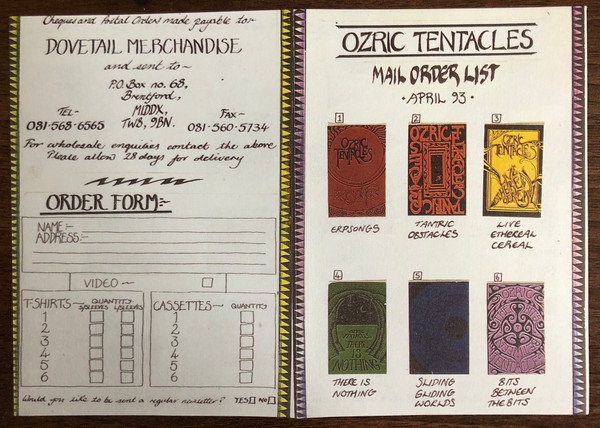 Cheques and Postal Orders made payable to:-
DOVETAIL MERCHANDISE
and sent to ~
P.O. Box no. 68,
Brentford,
MIDDX,
TW8, 9BN.
TEL-
081-568-6565
FAX-
081-560-5734
For wholesale enquiries contact the above
Please allow 28 days for delivery
ORDER FORM:-
NAME:-
ADDRESS:-
VIDEO~
T-SHIRTS- QUANTITY
S/SLEEVES L/SLEEVES
1
2
3
4
5
6
CASSETTES- QUANTITY
1
2
3
4
5
6
Would you like to be sent a regular newsletter? YES NO
OZRIC TENTACLES
MAIL ORDER LIST
· APRIL 93 ·
1
OZRIC
TENTACLES
ERPSONGS
2
OZRIC
TANTRIC
OBSTACLES
3
OZRIC
TENTACLES
LIVE
ETHEREAL
CEREAL
4
THERE
IS
NOTHING
THERE IS
NOTHING
5
SLIDING
GLIDING
WORLDS
6
OZRIC
BITS
BETWEEN
THE BITS